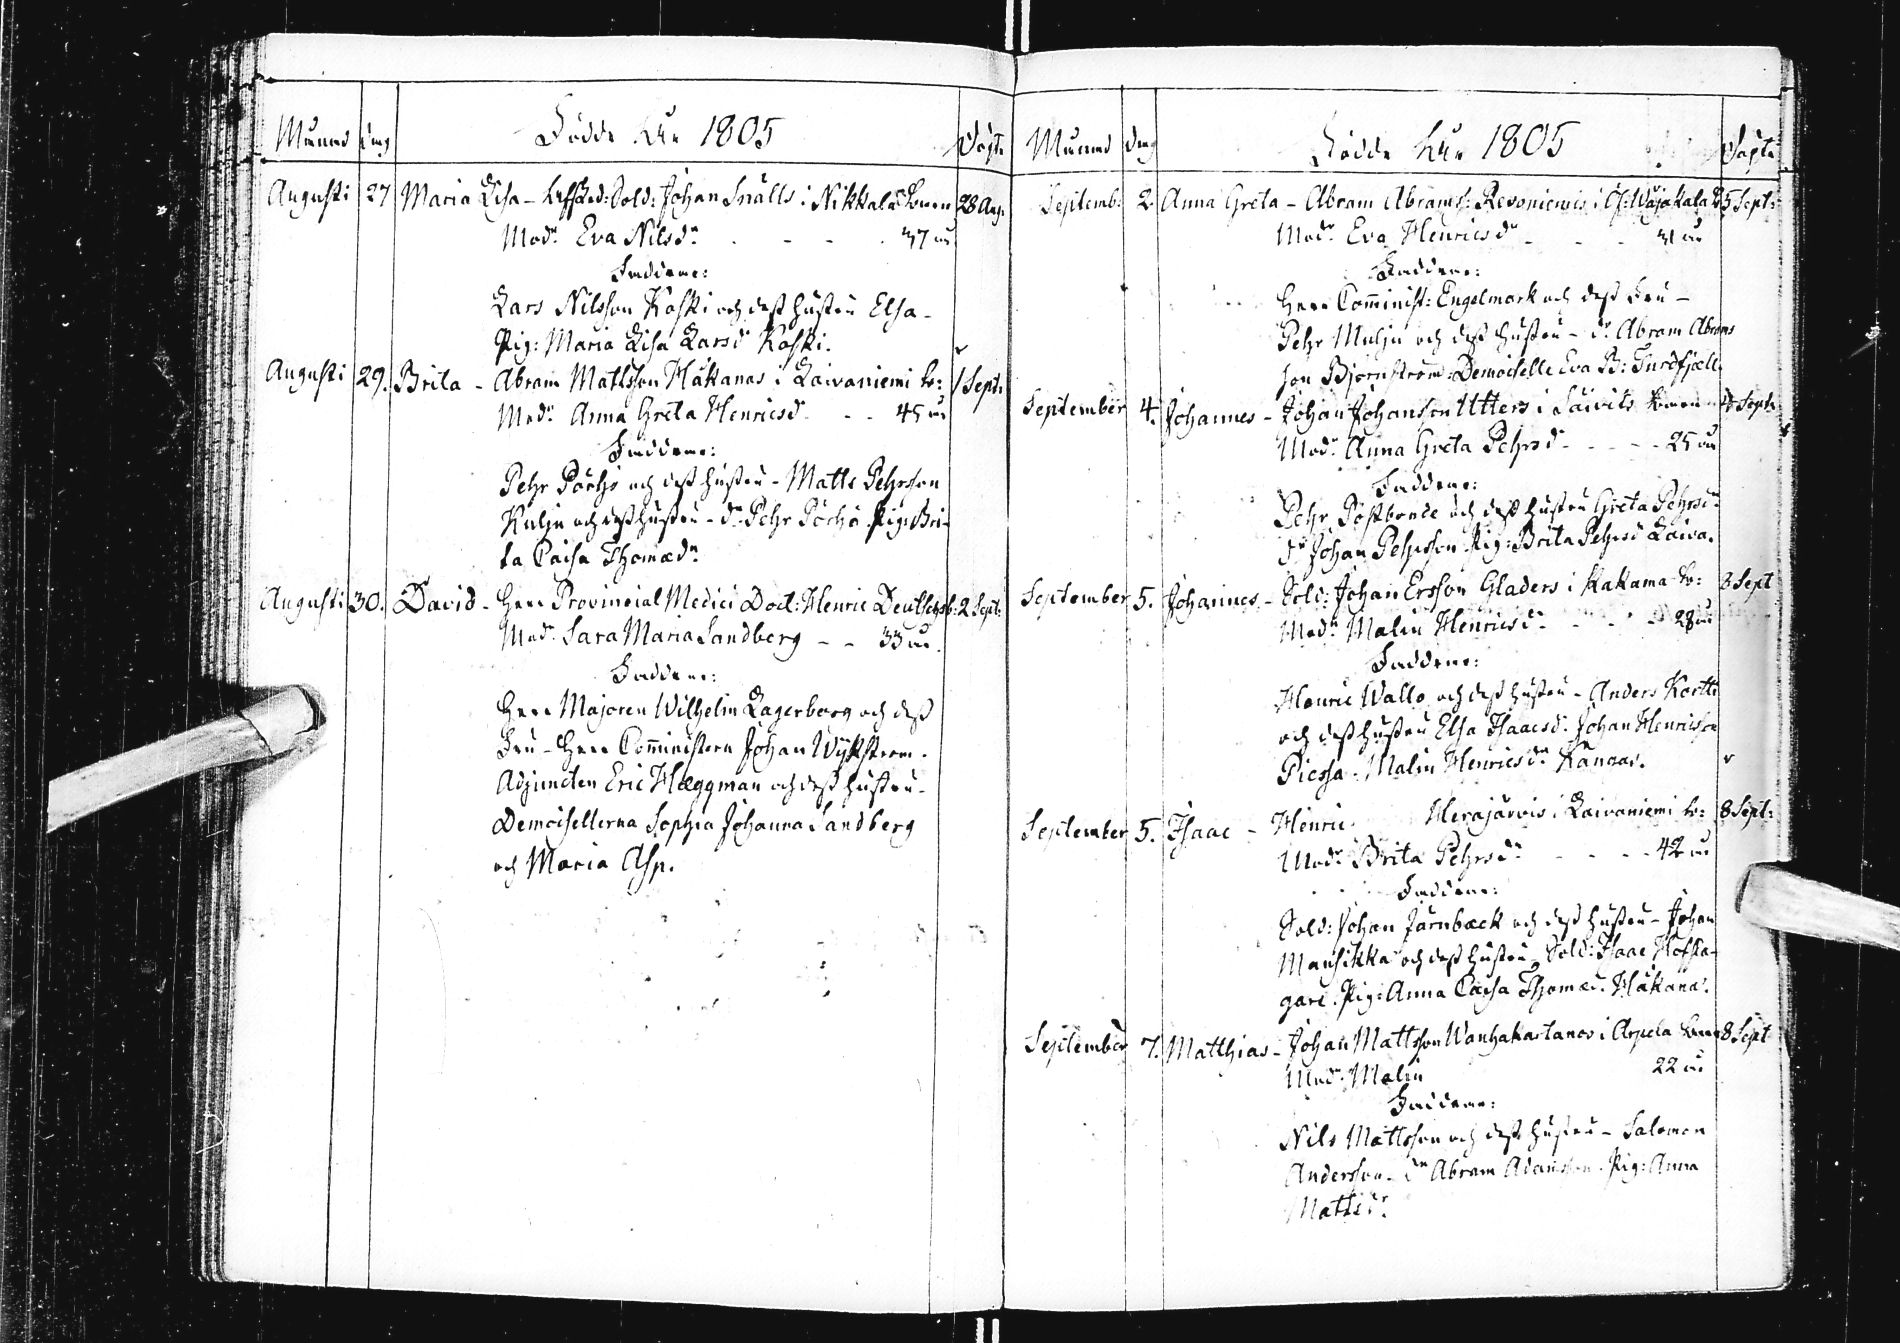 Månad dag Födde År 1805 Döpte
Augusti 27 Maria Lisa - Afsked: Sold: Johan Snålls i Nikkala 28 Aug.
Modr Eva Nilsdr - - - 37 år
Faddrar:
Lars Nilsson Koski och dess hustru Elsa -
Pig: Maria Lisa Larsdr Koski.
Augusti 29. Brita - Abram Matsson Häkanas i Laivaniemi by: 1 Sept:
Modr Anna Greta Henricsdr - - 45 år
Faddrar:
Pehr Pöchö och dess hustru - Matts Pehrsson
Kulju och dess hustru - dr Pehr Pöchö. Pig: Bri-
ta Caisa Thomædr
Augusti 30. David - Herr Provincial Medici Doct: Henric Deutsch 2 Sept:
Modr Sara Maria Sandberg - - 33 år.
Faddrar:
Herr Majoren Wilhelm Lagerborg och dess
Fru - Herr Comministern Johan Wykström.
Adjuncten Eric Hæggman och dess hustru -
Demoisellerna Sophia Johanna Sandberg
och Maria Asp.
Månad dag Födde År 1805 Döpte
Septemb: 2. Anna Greta - Abram Abramss: Revoniemis i 5 Sept:
Modr Eva Henricsdr - - - 31 år
Faddrar:
Herr Comminist: Engelmark och dess Fru -
Pehr Mulju och dess hustru - dr Abram Abrams
son Björnström - Demoiselle Eva B: Turdfjæll.
September 4. Johannes - Johan Johansson Utters i Säivits Sept:
Modr Anna Greta Pehrsdr - - - - 25 år
Faddrar:
Pehr Postbonde och dess hustru Greta Pehrsdr
dr Johan Pehrsson Pig: Brita Pehrsdr Laiva.
September 5. Johannes - Sold: Johan Ersson Gladers i Kakama by: 8 Sept
Modr Malin Henricsdr - - - - 28 år
Faddrar:
Henric Wallo och dess hustru - Anders Kortti
och dess hustru Elsa Isaacsdr. Johan Henricsson
Piessa - Malin Henricsdr Kangas.
September 5. Isaac - Henric Herajärvis i Laivaniemi by: 8 Sept:
Modr Brita Pehrsdr - - - - 42 år
Faddrar:
Sold: Johan Jarnbæck och dess hustru - Johan
Mansikka och dess hustru - Sold: Isaac
Pig: Anna Caisa Thomædr. Häkana.
September 7. Matthias - Johan Mattsson Wanhakartanos i Arpela 8 Sept
Modr Malin 22 år
Faddrar:
Nils Mattsson och dess hustru - Salomon
Andersson - dr Abram Adamsson. Pig: Anna
Matsdr.